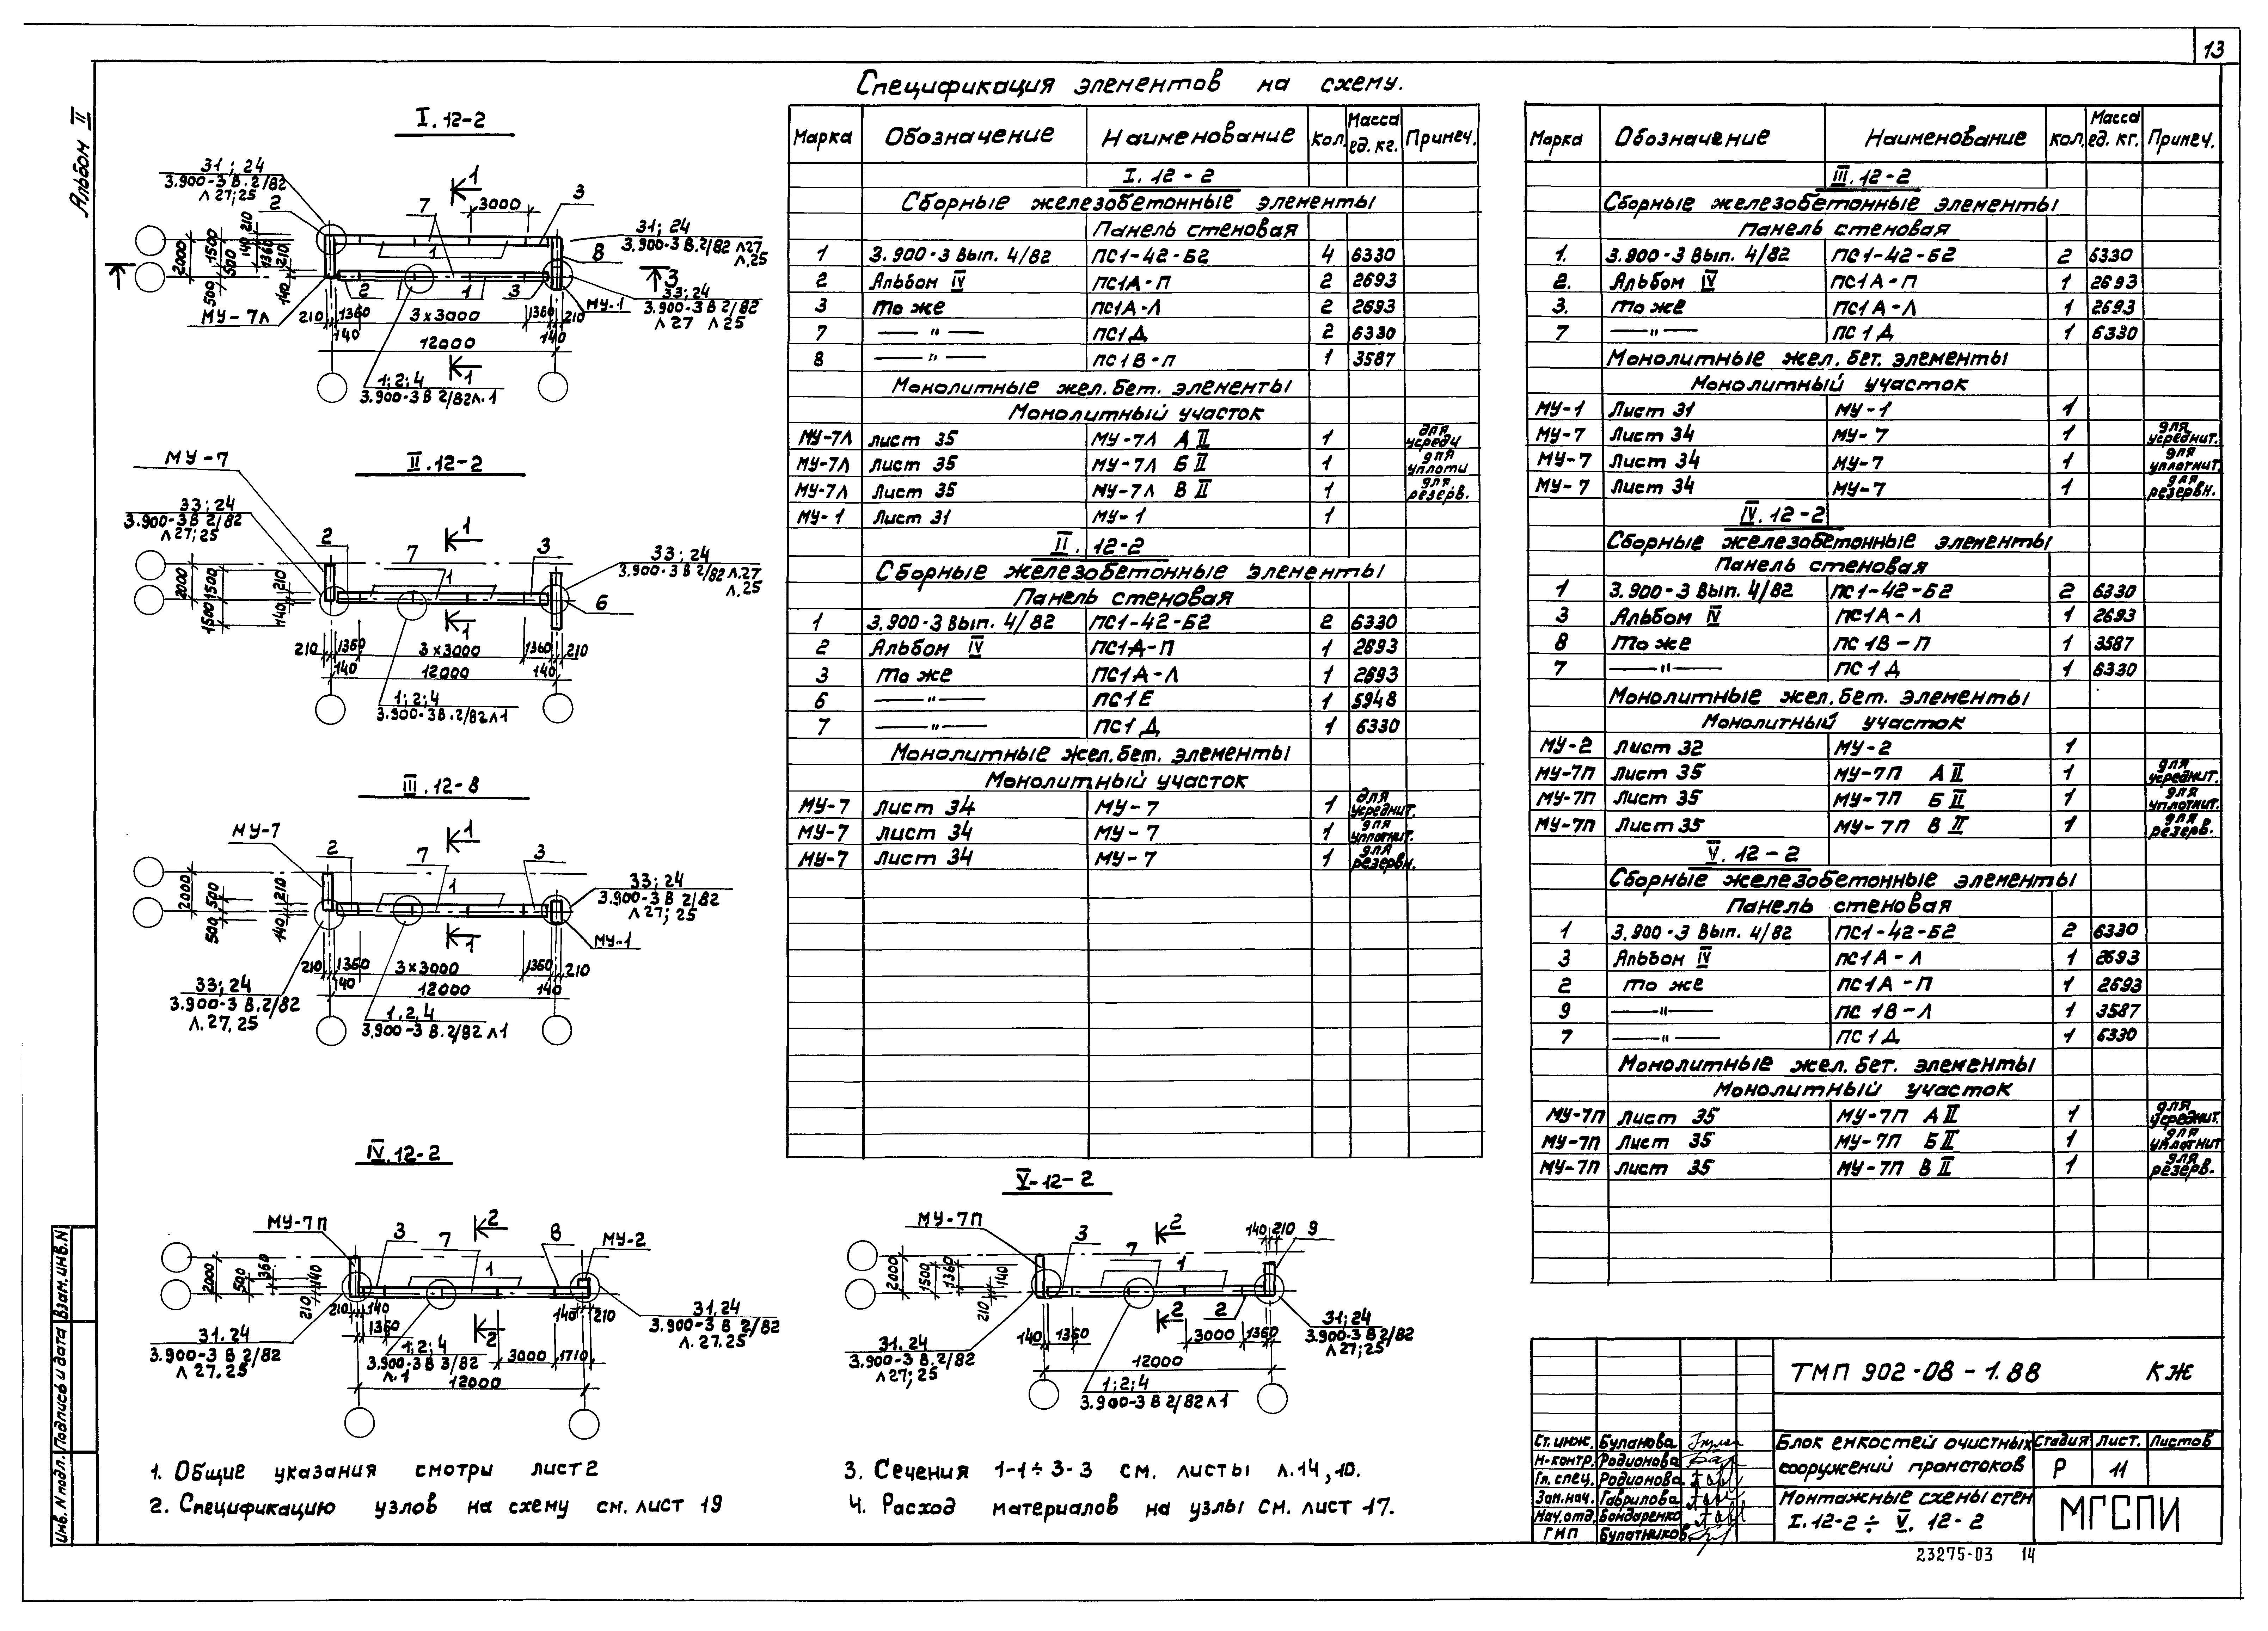 13
Альбом II
Спецификация элементов на схему.
I. 12-2
31; 24
3.900-3 В. 2/82
Л 27; 25
2
7
1
3000
3
31; 24
3.900-3 В. 2/82 Л27
Л.25
8
2000
1500
500
500
210
140
1360
210
140
1
3
2
1
3
МУ-1
33; 24
3.900-3 В 2/82
Л 27 Л 25
МУ-7Л
210
1360
140
3х3000
1360
140
210
12000
1
1; 2; 4
3.900-3 В 2/82 Л. 1
II. 12-2
МУ-7
33; 24
3.900-3 В 2/82
Л 27; 25
2
7
1
1
3
33; 24
3.900-3 В 2/82 Л.27
Л.25
6
2000
1500
1500
210
140
1
210
1360
140
3х3000
1360
140
210
12000
1; 2; 4
3.900-3 В. 2/82 Л 1
III. 12-8
МУ-7
2
7
1
1
3
33; 24
3.900-3 В 2/82
Л 27; 25
МУ-1
2000
500
500
210
140
1
210
1360
140
3х3000
1360
140
210
12000
33; 24
3.900-3 В. 2/82
Л. 27, 25
1, 2, 4
3.900-3 В. 2/82 Л 1
IV. 12-2
МУ-7П
3
7
2
1
8
МУ-2
2000
500
360
140
210
210
140
1360
2
3000
1710
140
210
12000
31. 24
3.900-3 В 2/82
Л 27. 25
1; 2; 4
3.900-3 В 3/82
Л. 1
31. 24
3.900-3 В 2/82
Л. 27. 25
V-12-2
МУ-7П
3
7
2
1
140 210 9
2000
1500
1360
140
210
140
1360
2
2
3000
1360
12000
31. 24
3.900-3 В. 2/82
Л 27; 25
1; 2; 4
3.900-3 В 2/82 Л 1
31; 24
3.900-3 В 2/82
Л 27; 25
Марка Обозначение Наименование Кол. Масса ед. кг. Примеч.
I. 12-2
Сборные железобетонные элементы
Панель стеновая
1 3.900-3 Вып. 4/82 ПС1-42-Б2 4 6330
2 Альбом IV ПС1А-П 2 2693
3 То же ПС1А-Л 2 2693
7 — " — ПС1Д 2 6330
8 — " — ПС1В-П 1 3587
Монолитные жел. бет. элементы
Монолитный участок
МУ-7Л лист 35 МУ-7Л А II 1 для усредн
МУ-7Л Лист 35 МУ-7Л Б II 1 для уплотн
МУ-7Л Лист 35 МУ-7Л В II 1 для резерв.
МУ-1 Лист 31 МУ-1 1
II. 12-2
Сборные железобетонные элементы
Панель стеновая
1 3.900-3 Вып. 4/82 ПС1-42-Б2 2 6330
2 Альбом IV ПС1А-П 1 2693
3 То же ПС1А-Л 1 2693
6 — " — ПС1Е 1 5948
7 — " — ПС1Д 1 6330
Монолитные жел. бет. элементы
Монолитный участок
МУ-7 Лист 34 МУ-7 1 для усреднит.
МУ-7 Лист 34 МУ-7 1 для уплотнит.
МУ-7 Лист 34 МУ-7 1 для резервн.
Марка Обозначение Наименование Кол. Масса ед. кг. Примеч.
III. 12-2
Сборные железобетонные элементы
Панель стеновая
1. 3.900-3 Вып. 4/82 ПС1-42-Б2 2 6330
2. Альбом IV ПС1А-П 1 2693
3. То же ПС1А-Л 1 2693
7 — " — ПС1Д 1 6330
Монолитные жел. бет. элементы
Монолитный участок
МУ-1 Лист 31 МУ-1 1
МУ-7 Лист 34 МУ-7 1 для усреднит.
МУ-7 Лист 34 МУ-7 1 для уплотнит.
МУ-7 Лист 34 МУ-7 1 для резервн.
IV. 12-2
Сборные железобетонные элементы
Панель стеновая
1 3.900-3 Вып. 4/82 ПС1-42-Б2 2 6330
3 Альбом IV ПС1А-Л 1 2693
8 То же ПС1В-П 1 3587
7 — " — ПС1Д 1 6330
Монолитные жел. бет. элементы
Монолитный участок
МУ-2 Лист 32 МУ-2 1
МУ-7П Лист 35 МУ-7П А II 1 для усреднит.
МУ-7П Лист 35 МУ-7П Б II 1 для уплотнит.
МУ-7П Лист 35 МУ-7П В II 1 для резерв.
V. 12-2
Сборные железобетонные элементы
Панель стеновая
1 3.900-3 Вып. 4/82 ПС1-42-Б2 2 6330
3 Альбом IV ПС1А-Л 1 2693
2 то же ПС1А-П 1 2693
9 — " — ПС 1В-Л 1 3587
7 — " — ПС1Д 1 6330
Монолитные жел. бет. элементы
Монолитный участок
МУ-7П Лист 35 МУ-7П А II 1 для усреднит.
МУ-7П Лист 35 МУ-7П Б II 1 для уплотнит
МУ-7П Лист 35 МУ-7П В II 1 для резерв.
1. Общие указания смотри лист 2
2. Спецификацию узлов на схему см. лист 19
3. Сечения 1-1÷3-3 см. листы л.14, 10.
4. Расход материалов на узлы см. лист 17.
Инв. N подл. Подпись и дата Взам. инв. N
ТМП 902-08-1.88 КЖ
Ст. инж. Буланова
Н-контр. Родионова
Гл. спец. Родионова
Зам. нач. Гаврилова
Нач. отд. Бондаренко
ГИП Булатников
Блок емкостей очистных
сооружений промстоков
Стадия Лист. Листов
Р 11
Монтажные схемы стен
I. 12-2 ÷ V. 12-2
МГСПИ
23275-03 14